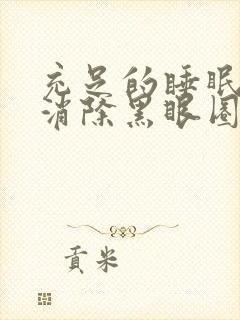 充足的睡眠
消除黑眼圈
贡米